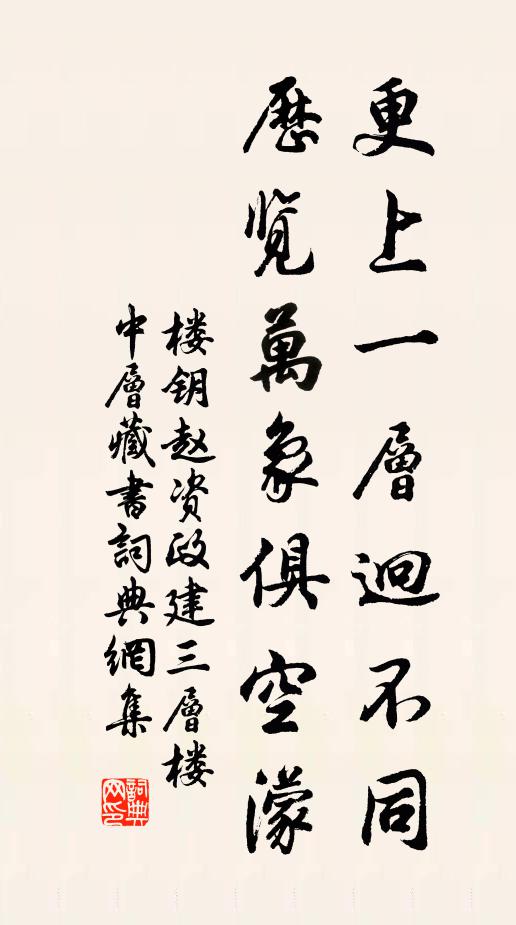 更上一層迥不同
歷览萬象俱空濛
楼钥赵资政建三層楼
中層藏書詞典網集
詞典